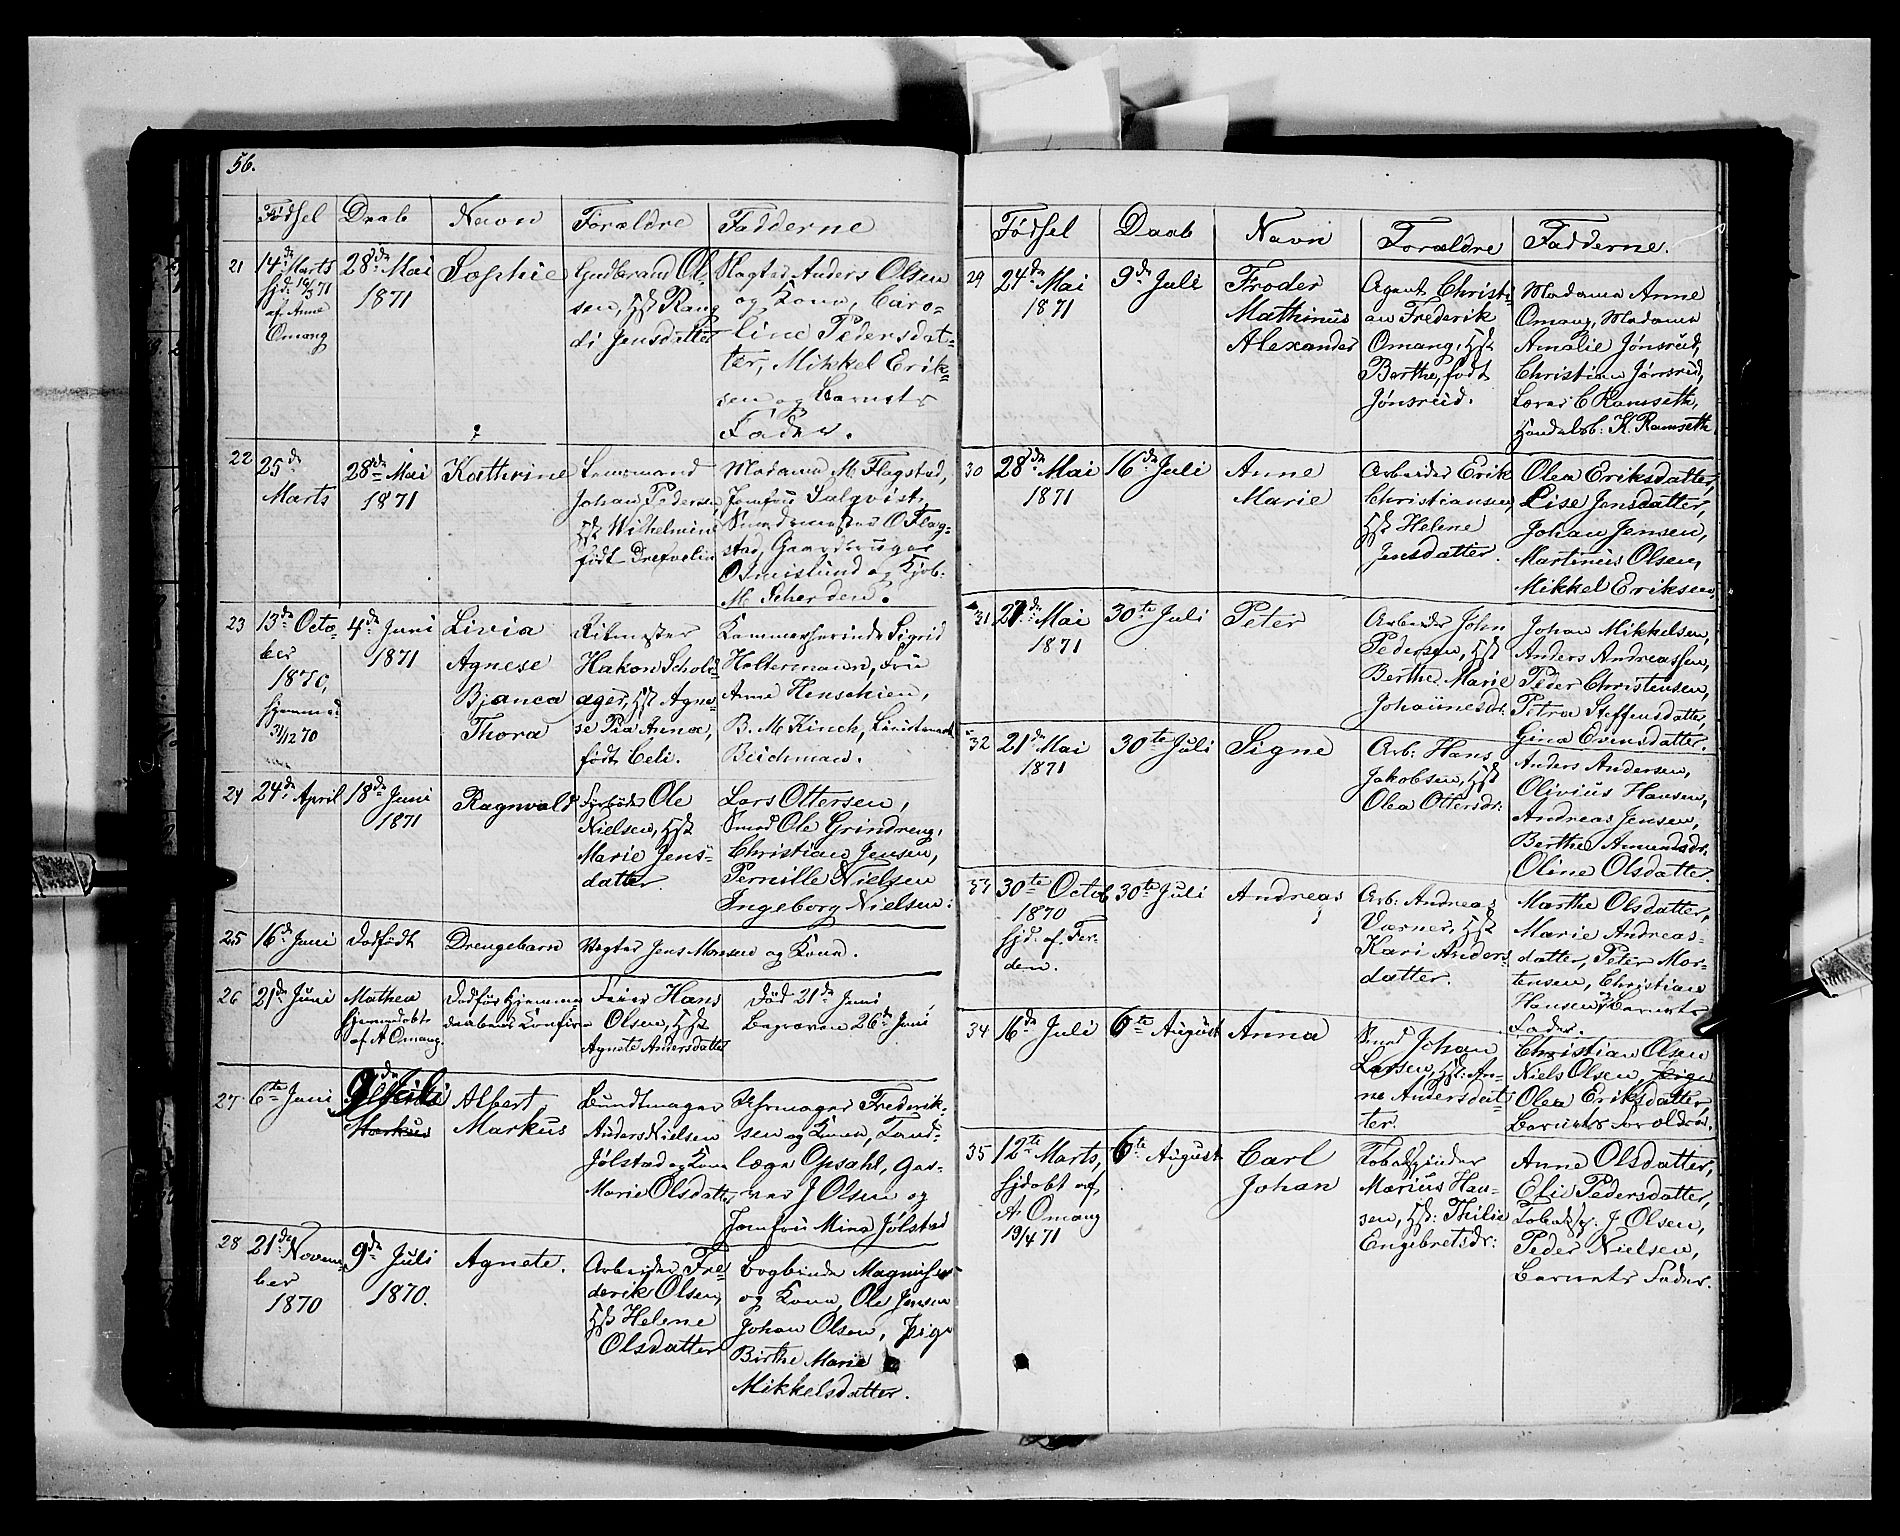 56.
Fødsel Daab Navn Forældre Fadderne
21 14de Marts
hjd. 16/3 71
af Anne
Omang
28de Mai
1871
Sophie
Gudbrand Ol-
sen, Hst Rang
di Jensdatter
Anders Olsen
og Kone, Caro-
line Pedersdat-
ter, Mikkel Erik-
sen og Barnets
Fader.
22 25de
Marts
28de Mai
1871
Kathrine
Lensmand
Johan Pedersen
Hst Wilhelmine
født Drefvelin
Madame M. Flagstad,
Jomfru Salqvist,
O Flag-
stad, Gaardbruger
O Imislund og Kjøb.
M. Scherden.
23 13de Octo-
ber
1870,
hjemmed.
31/12 70
4de Juni
1871
Livia
Agnese
Bjanca
Thora
Ritmester
Hakon Schold-
ager, Hst Agne-
se Pia Anna,
født Celi.
Kammerherinde Sigrid
Holtermann, Fru
Anne Henschien,
B. M. Kinck, Lieutenant
Beichman.
24 24de April
18de Juni
1871
Ragnvald
Fyrbøder Ole
Nielsen, Hst
Marie Jens-
datter
Lars Ottersen,
Smed Ole Grindreng,
Christian Jensen,
Pernille Nielsen
Ingeborg Nielsen.
25 16de Juni Dødfødt Drengebarn Vogter Jens Monsen og Kone.
26 21de Juni
Mathea
hjemmedøbt
af A Omang.
Død før hjemme
daabens Confir-
Feier Hans
Olsen, Hst
Agnete Andersdatter
Død 21de Juni
Begraven 26de Juni
27 6te Juni
9de Juli
Markus
Albert
Markus
Bundtmager
Anders Nielsen
Jølstad og Kone
Marie Olsdatter
Uhrmager Frederik-
sen og Kone, Tand-
læge Opsahl, Gar-
ver J Olsen og
Jomfru Mina Jølstad
28 21de Novem-
ber
1870
9de Juli
1870.
Agnete.
Arbeider Fre-
derik Olsen,
Hst Helene
Olsdatter
Bogbinder Magnussen
og Kone, Ole Jensen
Johan Olsen, Pige
Birthe Marie
Mikkelsdatter.
Fødsel Daab Navn Forældre Fadderne.
29 24de Mai
1871
9de Juli
Froder
Mathinus
Alexander
Agent Christi-
an Frederik
Omang, Hst
Berthe, født
Jønsrud.
Madame Anne
Omang, Madame
Amalie Jønsrud,
Christian Jønsrud,
Lærer C Ramseth,
Handelsb: K. Ramseth
30 28de Mai
1871
16de Juli
Anne
Marie
Arbeider Erik
Christiansen,
Hst Helene
Jensdatter.
Olea Eriksdatter,
Lise Jensdatter,
Johan Jensen,
Martinus Olsen,
Mikkel Eriksen.
31 27de Mai
1871
30te Juli
Peter
Arbeider John
Pedersen, Hst
Berthe Marie
Johannesdr.
Johan Mikkelsen,
Anders Andreassen,
Peder Christensen,
Petra Steffensdatter,
Gina Evensdatter.
32 21de Mai
1871
30te Juli
Signe
Arb: Hans
Jakobsen, Hst
Olea Ottersdr:
Anders Andersen,
Olivius Hansen,
Andreas Jensen,
Berthe Amundsdr.
Oline Olsdatter.
33 30te Octob
1870
hjd. af Fer-
den.
30te Juli
Andreas
Arb: Andreas
Værner, Hst
Kari Anders-
datter.
Marthe Olsdatter,
Marie Andreas-
datter, Peter Mor-
tensen, Christian
Hansen og Barnets
Fader.
34 16de Juli
6te August
Anna
Smed Johan
Larsen, Hst: An-
ne Andersdat-
ter.
Christian Olsen
Niels Olsen, Pige
Olea Eriksdatter,
Barnets Forældre.
35 12te Marts,
hjdøbt af
A. Omang
19/4 71
6te August
Carl
Johan
Tobakspinder
Marius Han-
sen, Hst: Thilia
Engebretsdr:
Anne Olsdatter,
Elie Pedersdatter,
Tobaksp: J. Olsen,
Peder Nielsen,
Barnets Fader.